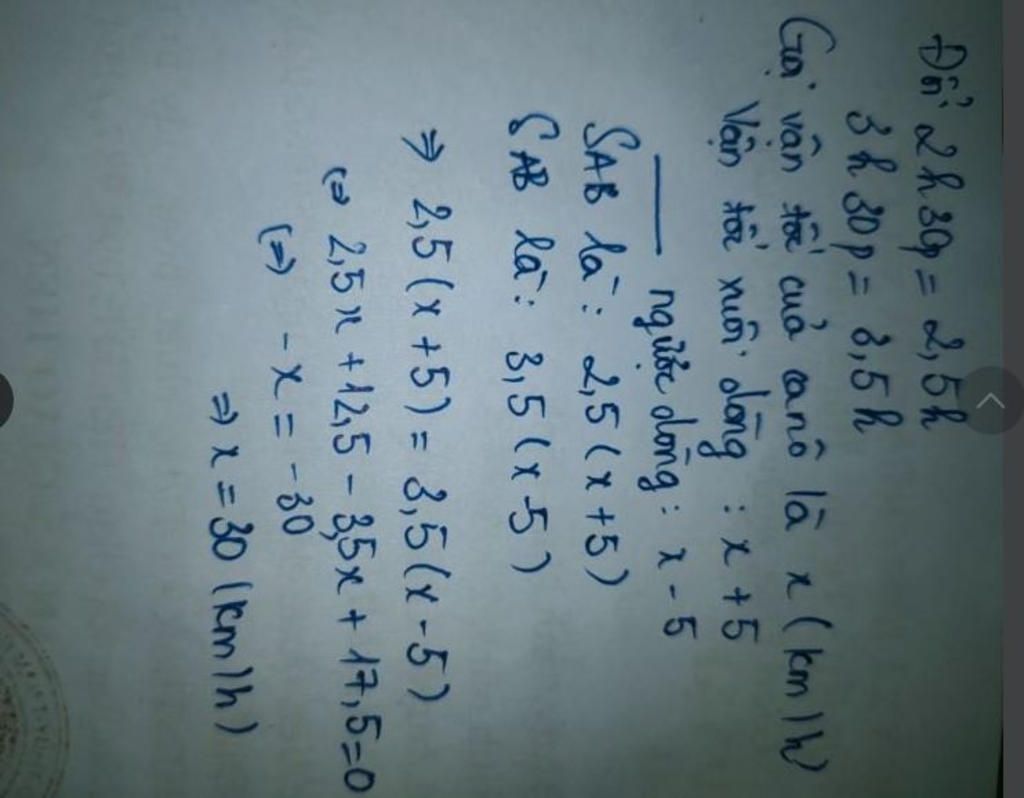 Đổi 2h30p = 2,5h
3h30p = 3,5h
Gọi vận tốc của canô là x (km/h)
Vận tốc xuôi dòng : x + 5
ngược dòng : x - 5
SAB là : 2,5(x+5)
SAB là : 3,5(x-5)
⇒ 2,5(x+5) = 3,5(x-5)
(=) 2,5x + 12,5 - 3,5x + 17,5 = 0
(=) -x = -30
⇒ x = 30 (km/h)